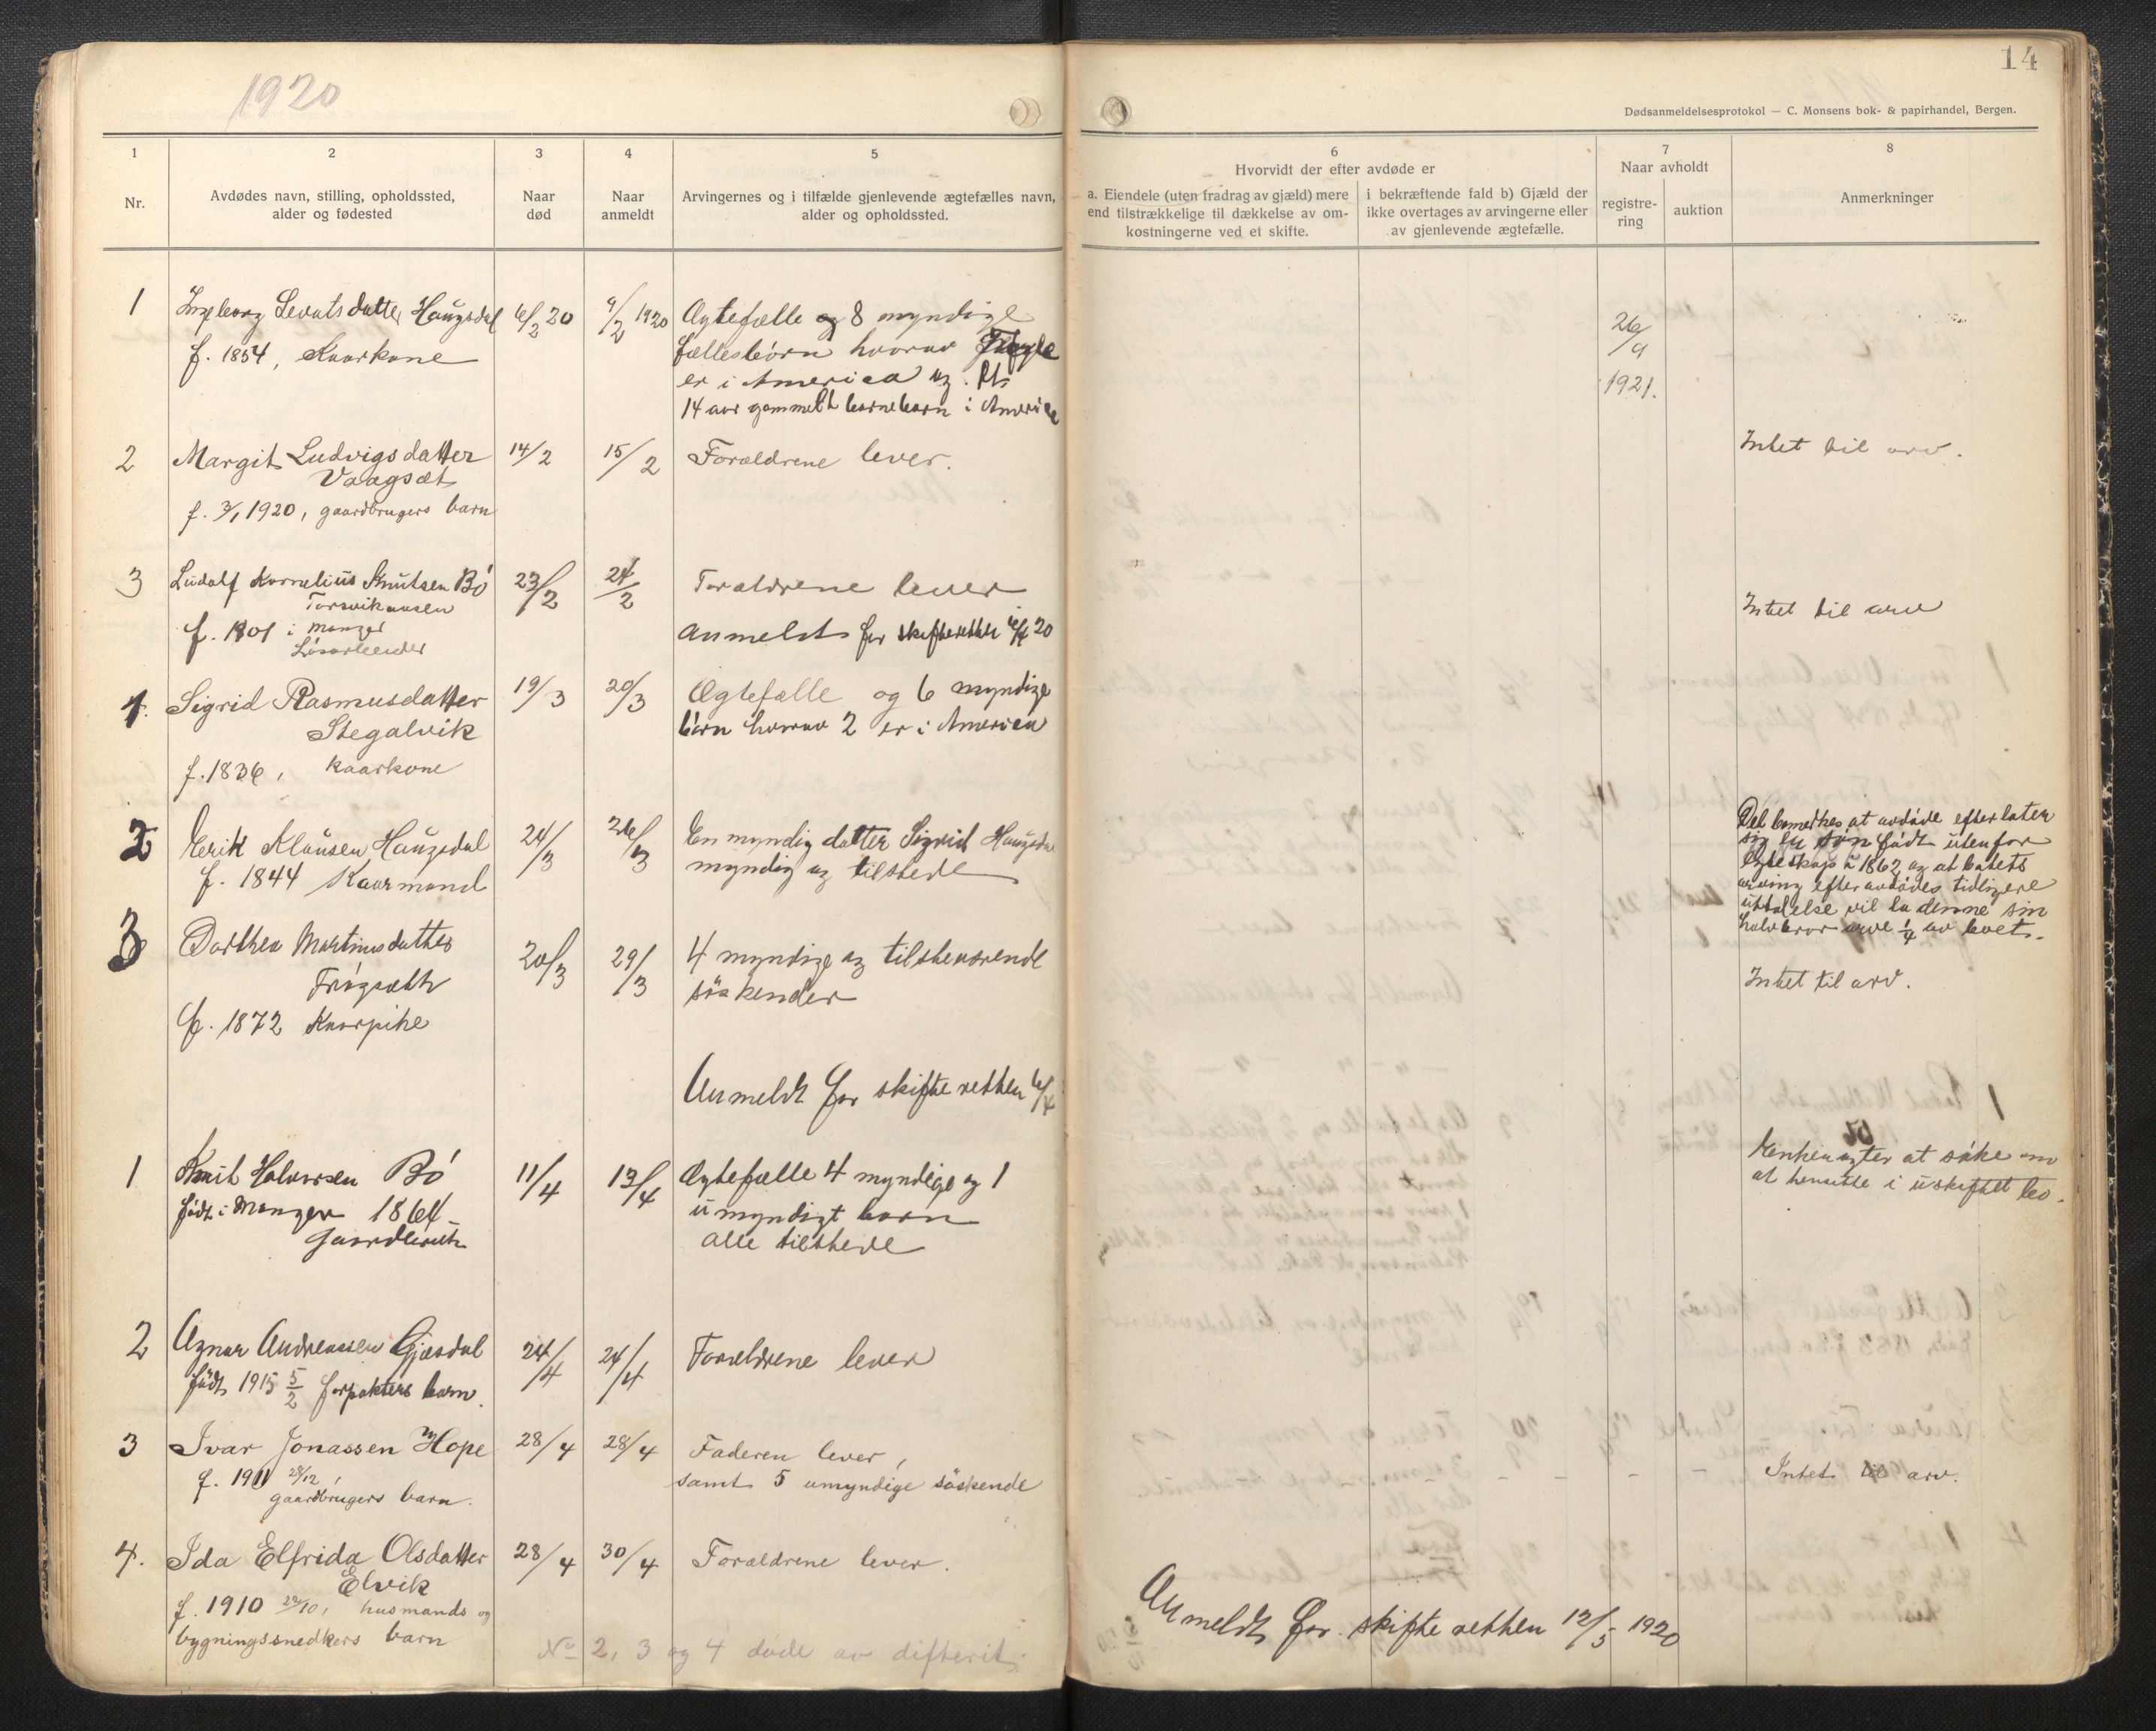 1920
14
Dødsanmeldelsesprotokol — C. Monsens bok- & papirhandel, Bergen.
1
2
3
4
5
6
7
8
Nr.
Avdødes navn, stilling, opholdssted,
alder og fødested
Naar
død
Naar
anmeldt
Arvingernes og i tilfælde gjenlevende ægtefælles navn,
alder og opholdssted.
Hvorvidt der efter avdøde er
a. Eiendele (uten fradrag av gjæld) mere
end tilstrækkelige til dækkelse av om-
kostningerne ved et skifte.
i bekræftende fald b) Gjæld der
ikke overtages av arvingerne eller
av gjenlevende ægtefælle.
Naar avholdt
registre-
ring
auktion
Anmerkninger
1 Ingeborg Haugsdal 6/2 20 9/2 1920 Ægtefælle og 8 myndige
f. 1854, Kaarkone fællesbörn hvorav
er i America og
14 aar gammelt barnebarn i America
26/9
1921.
2 Margit Ludvigsdatter 14/2 15/2 Forældrene lever. Intet til arv.
Vaagsæt
f. 3/1 1920, gaardbrugers barn
3 Ludolf Kornelius Knutsen Bö 23/2 24/2 Forældrene lever Intet til arv
f. 1901 i Manger Anmeldt for skifteretten 6/4 20
Lösarbeider
4. Sigrid Rasmusdatter 19/3 20/3 Ægtefælle og 6 myndige
Stegalvik börn hvorav 2 er i America
f. 1836, kaarkone
2 Erik Klausen Haugsdal 24/3 26/3 En myndig datter Sigrid
f. 1844 Kaarmand myndig og tilstede
Det bemerkes at avdöde efterlater
sig en sön födt utenfor
egteskap i 1862 og at boets
arving efter avdödes tidligere
uttalelse vil la denne sin
halvbror arve 1/4 av boet.
3 Dorthea Martinusdatter 20/3 29/3 4 myndige og tilstevärende
söskender Intet til arv.
f. 1872 Kaarpike
Anmeldt for skifteretten 6/4
1 Knut Halvorsen Bö 11/4 13/4 Ægtefælle 4 myndige og 1
födt i Manger 1864 umyndigt barn
Gaardbruk alle tilstede
Enken agter at söke om
at hensitte i uskiftet bo.
2 Agnar Andreassen Gjæsdal 24/4 24/4 Forældrene lever
födt 1915 5/2 forpakters barn.
3 Ivar Jonassen Hope 28/4 28/4 Faderen lever,
f. 1911 28/12, samt 5 umyndige söskende Intet til arv.
gaardbrugers barn.
4. Ida Elfrida Olsdatter 28/4 30/4 Forældrene lever.
Elvik
f. 1910 husmands og
bygningssnedkers barn
Nr 2, 3 og 4 døde av difterit.
Anmeldt for skifteretten 12/5 1920